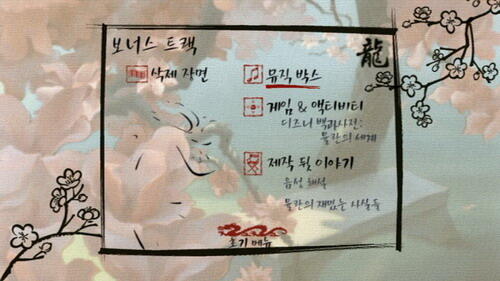 보너스 트랙
龍
삭제 장면
뮤직 박스
게임 & 액티비티
디즈니 백과사전:
뮬란의 세계
제작 뒷 이야기
음성 해설
뮬란의 재밌는 사실들
초기 메뉴